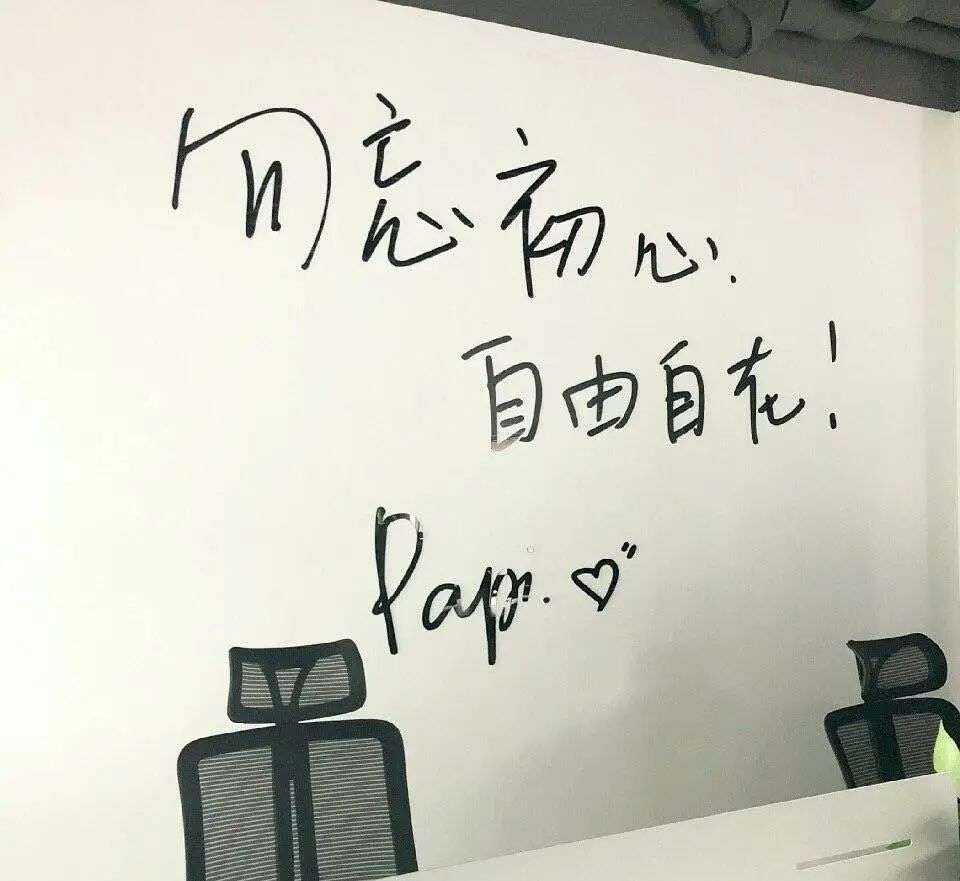 勿忘初心.
自由自在!
Papi.♡